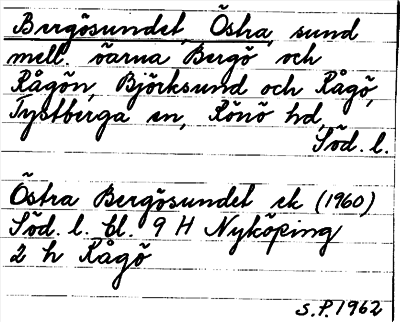 Bergösundet, Östra, sund
mell. öarna Bergö och
Rågön, Björksund och Rågö,
Tystberga sn, Rönö hd,
Söd. l.
Östra Bergösundet ek (1960)
Söd. l. bl. 9 H Nyköping
2 h Rågö
S.P. 1962